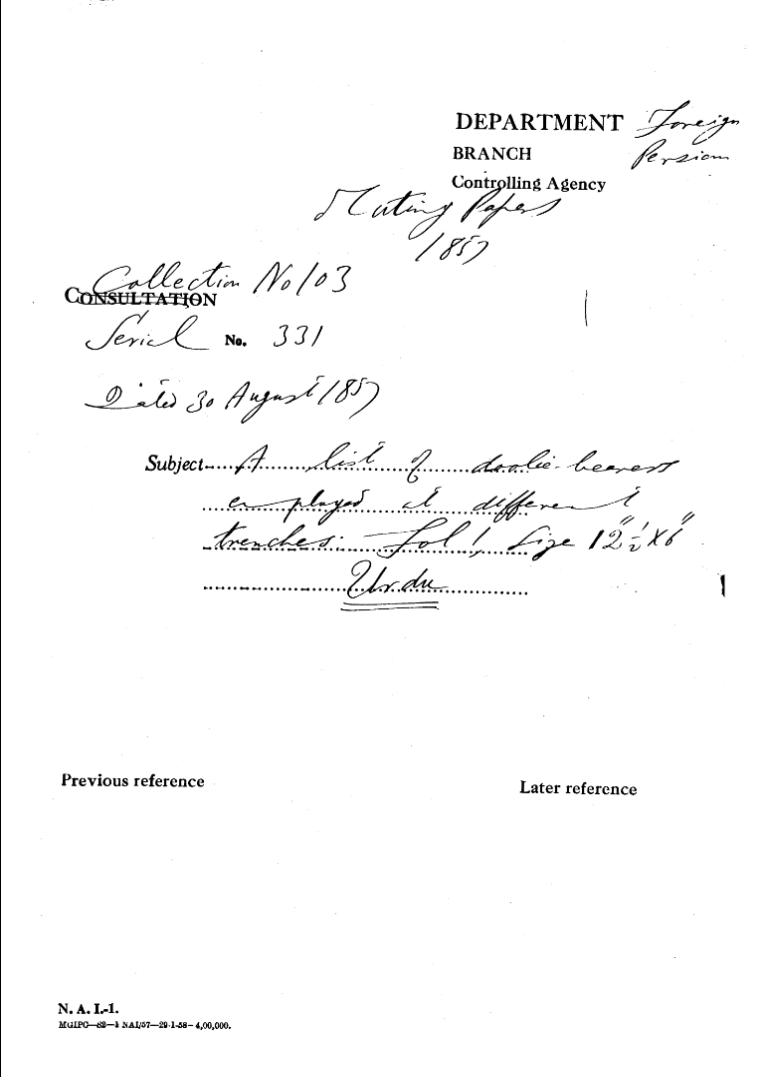 DEPARTMENT Foreign
BRANCH Persian
Controlling Agency
Mutiny Papers
1857
Collection No 103
CONSULTATION
Serial No. 331
Dated 30 August 1857
Subject A list of doolie-bearers
employed at different
trenches. Fol 1, Size 12 1/2" x 6"
Urdu
Previous reference
Later reference
N. A. I.-1.
MGIPC—82—1 NAI/57—29-1-58—4,00,000.